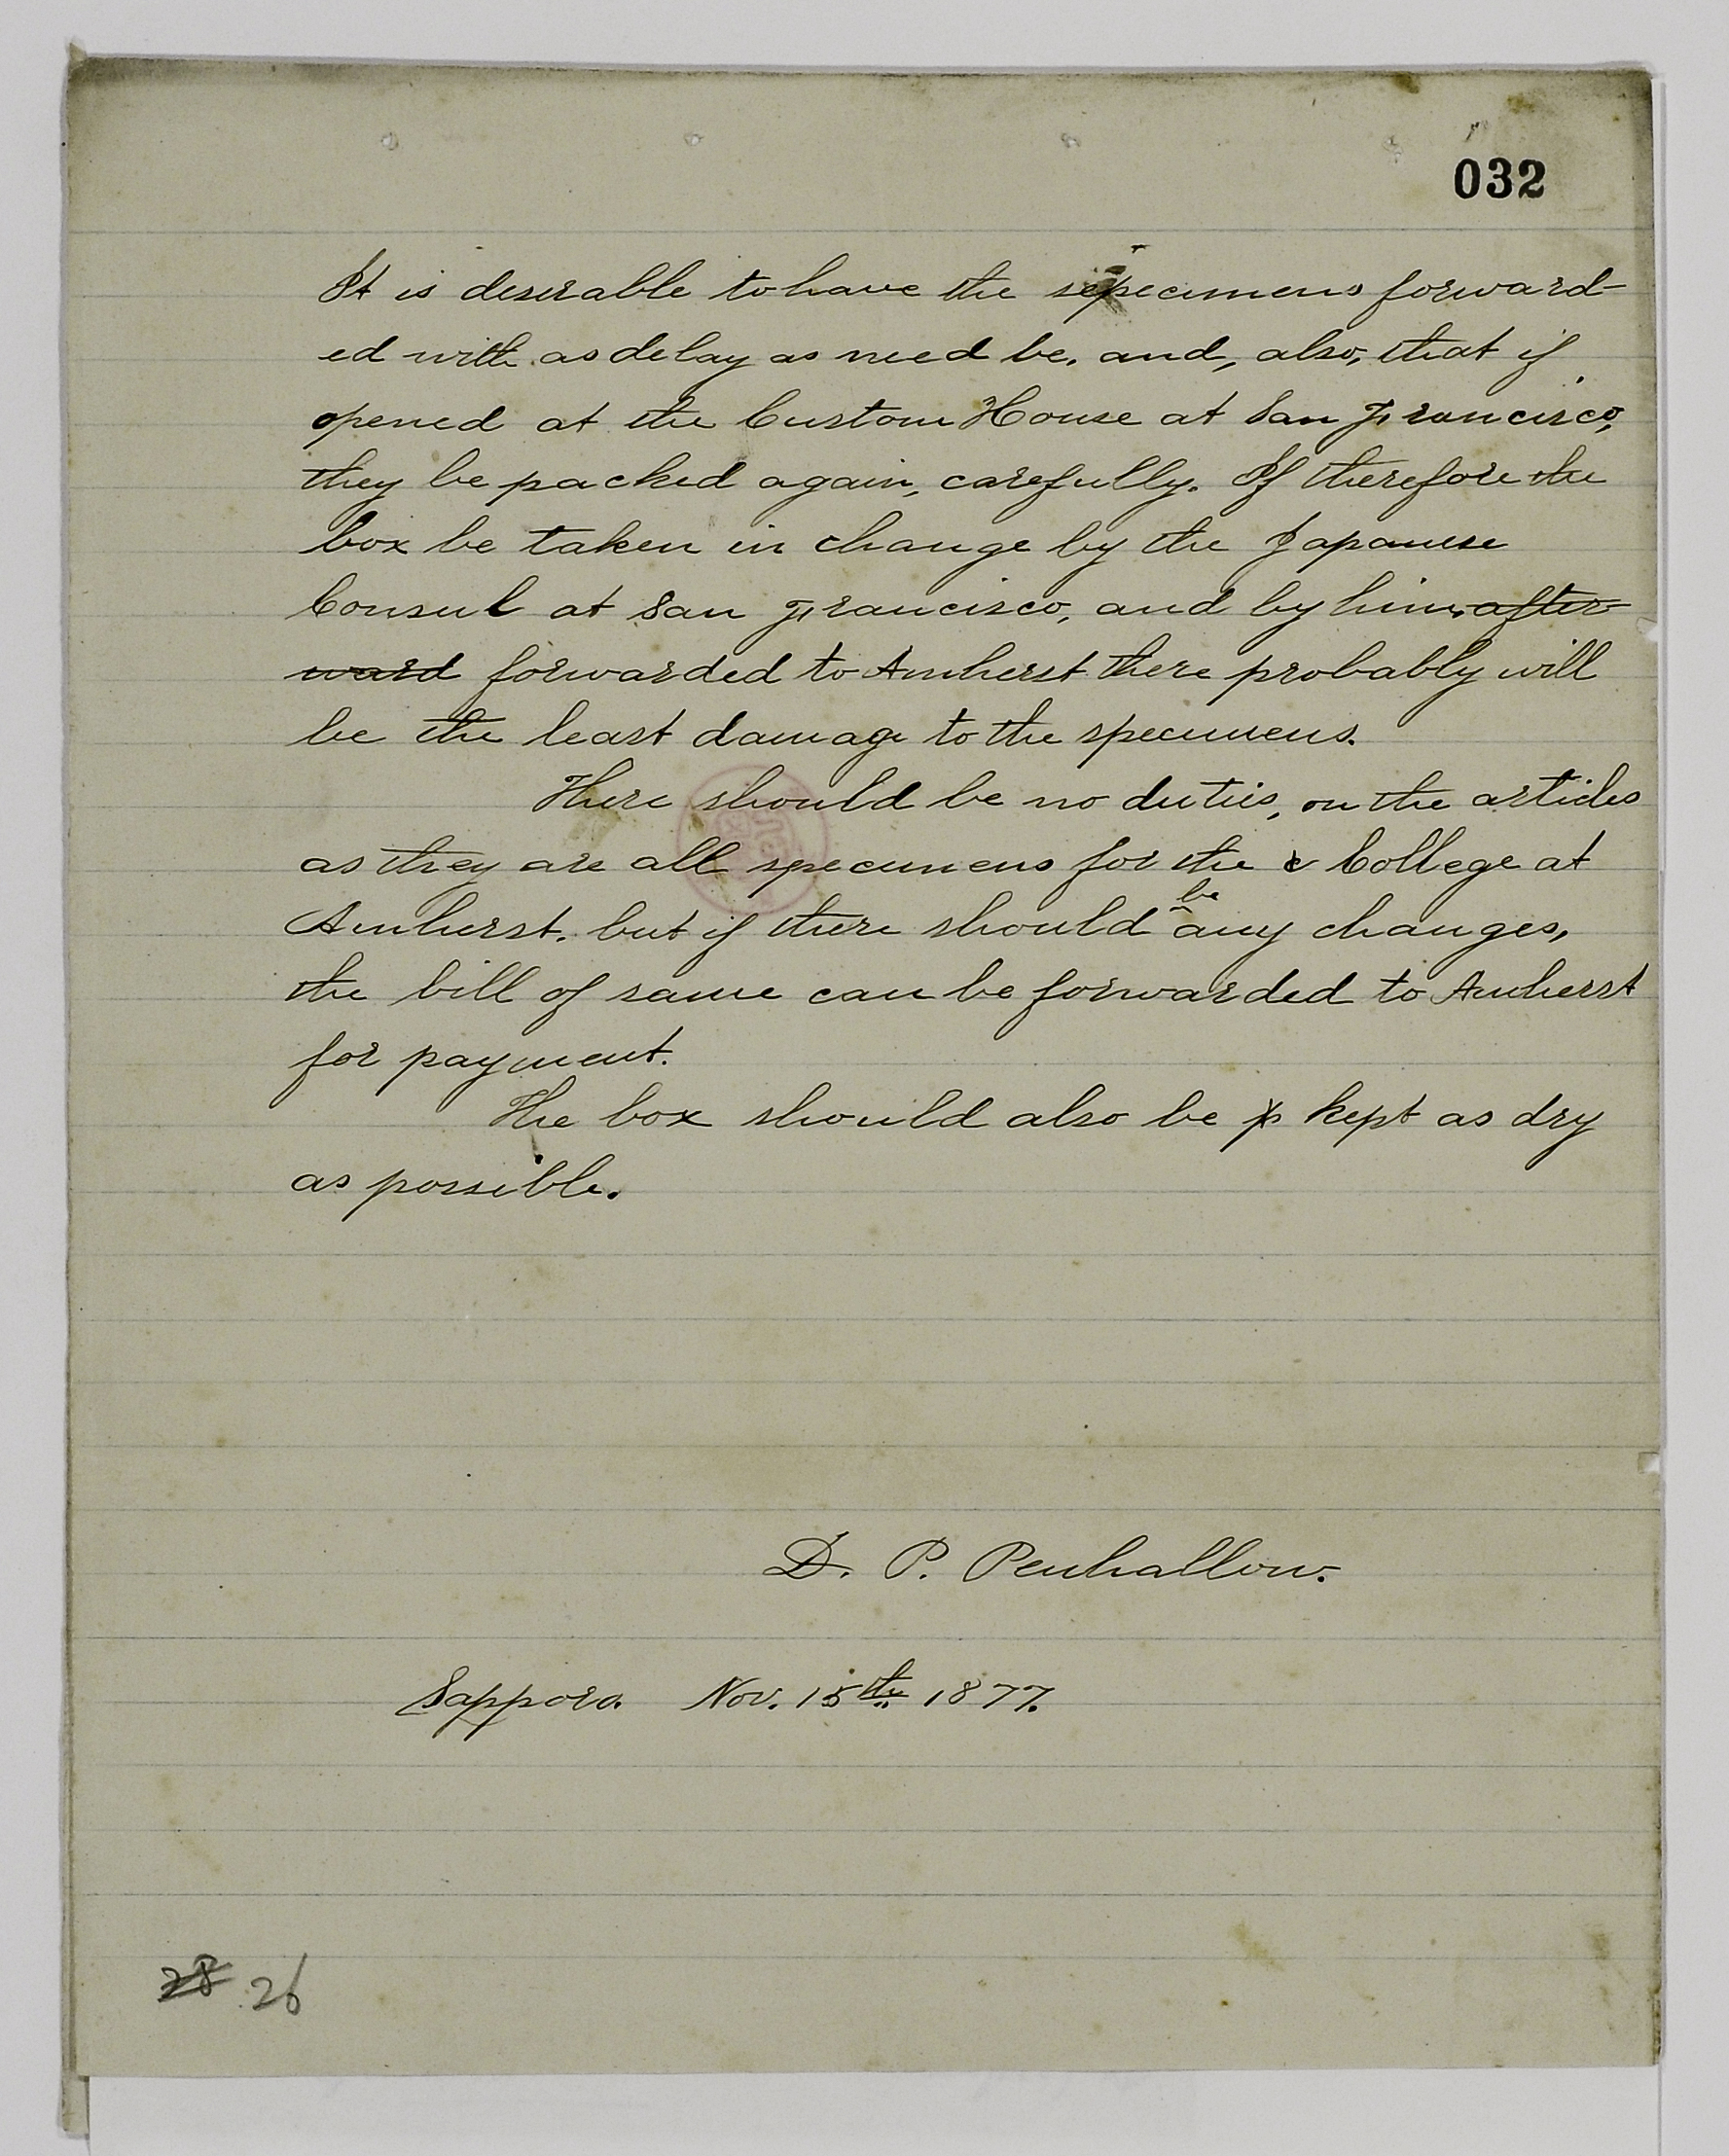 032
It is desirable to have the specimens forward-
ed with as delay as need be, and, also, that if
opened at the Custom House at San Francisco,
they be packed again, carefully. If therefore the
box be taken in charge by the Japanese
Consul at San Francisco, and by him after-
ward forwarded to Amherst there probably will
be the least damage to the specimens.
There should be no duties, on the articles
as they are all specimens for the c College at
Amherst. but if there should be any charges,
the bill of same can be forwarded to Amherst
for payment.
The box should also be p kept as dry
as possible.
D. P. Penhallow.
Sapporo. Nov. 15th 1877.
28 26